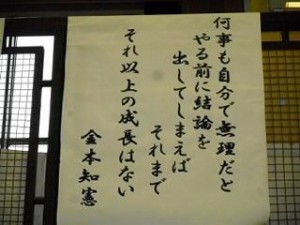 何事も自分で無理だと
やる前に結論を
出してしまえば
それまで
それ以上の成長はない
金本知憲